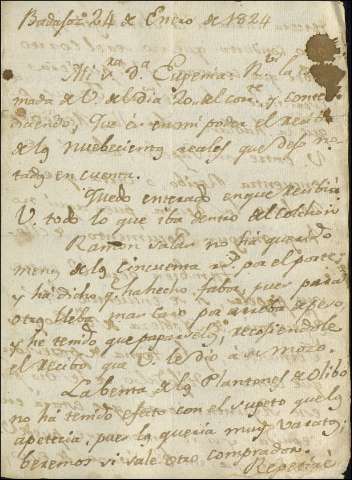 Badajoz 24 de Enero de 1824
Mi s.ra d.a Eugenia: R.bi la esti
mada de V. del dia 20. del corr.te y conte
diciendo, Que és en mi poder el recibo
de los nuebecientos reales que dejo no
tados en cuenta.
Quedo enterado en que recibirá
V. todo lo que iba dentro del colchón
Ramon Salas no há querido
menos de los cincuenta r.s por el porte,
y há dicho q. ha hecho fabor, pues para
otro lleba mas caro p.r arroba de peso,
y he tenido que pagarselo, recogiendole
el recibo que V. le dio á su mozo.
La benta de los Plantones de Olibo
no há tenido efecto con el sugeto que los
apetecia, pues los queria muy varatos;
beremos si sale otro comprador.
Repetiré